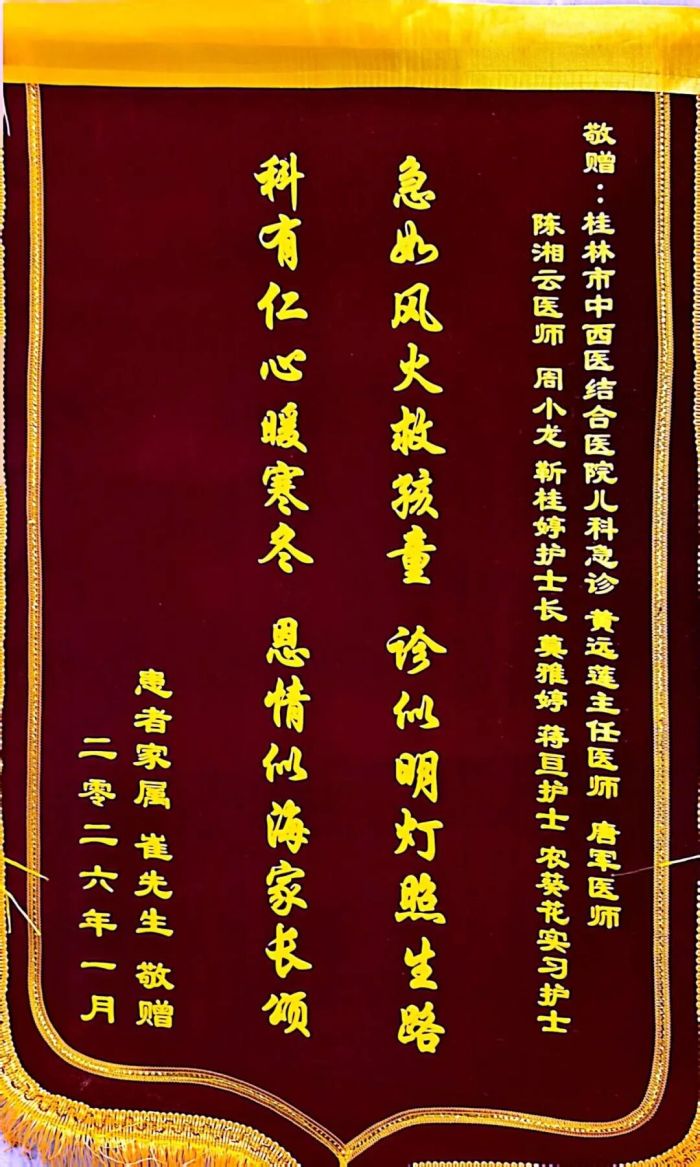 敬赠：桂林市中西医结合医院儿科急诊 黄远莲主任医师 唐军医师
陈湘云医师 周小龙 靳桂婷护士长 莫雅婷 蒋亘护士 农葵花实习护士
急如风火救孩童 诊似明灯照生路
科有仁心暖寒冬 恩情似海家长颂
患者家属 崔先生 敬赠
二零二六年一月